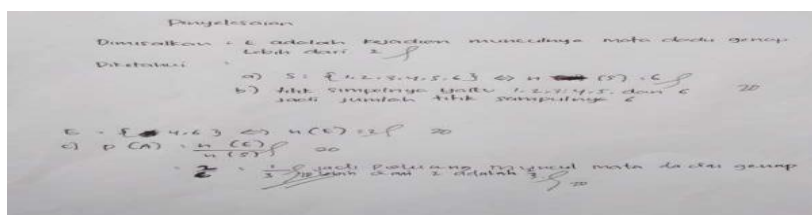 Penyelesaian
Dimisalkan : E adalah kejadian munculnya mata dadu genap
lebih dari 2
Diketahui :
a) S : {1,2,3,4,5,6} ⇔ n (S) : 6
b) titik simpelnya yaitu 1,2,3,4,5, dan 6 20
jadi jumlah titik sampulnya 6
E = { 4,6 } ⇔ n(E) = 2 20
c) P (A) : n (E) / n (S) 20
= 2/6 = 1/3 jadi peluang muncul mata dadu genap
lebih dari 2 adalah 20